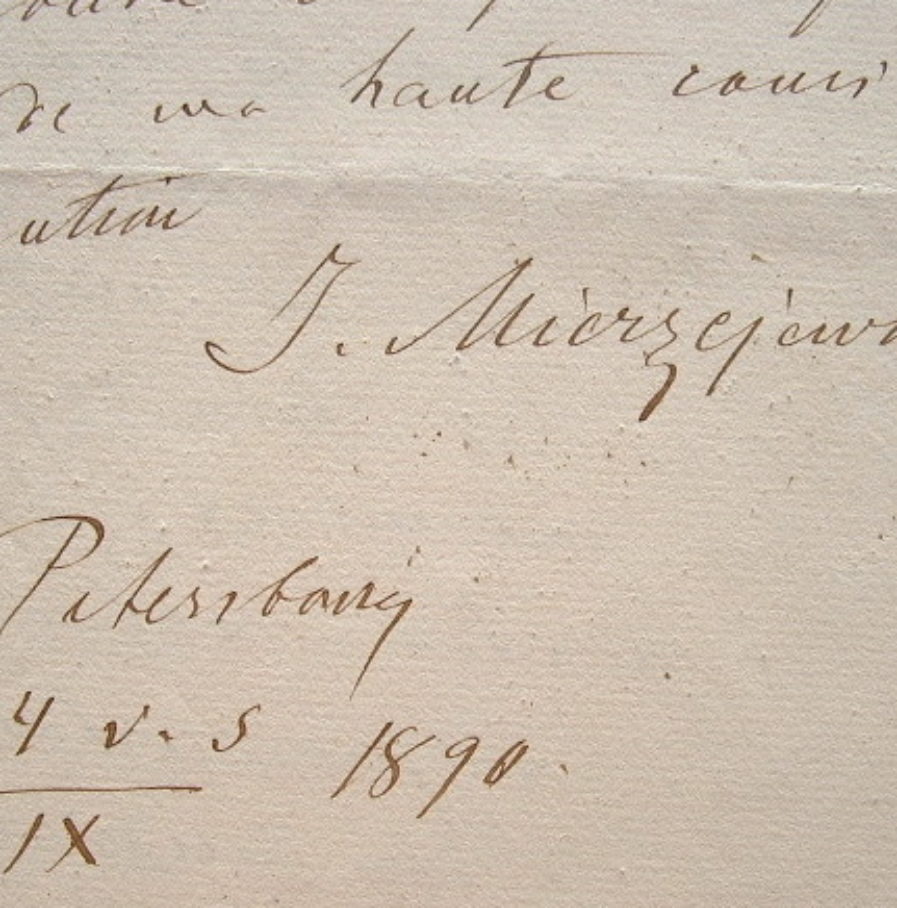 de ma haute consi
ation
J. Mierzejews
Petersbourg
4 v. s 1890.
IX